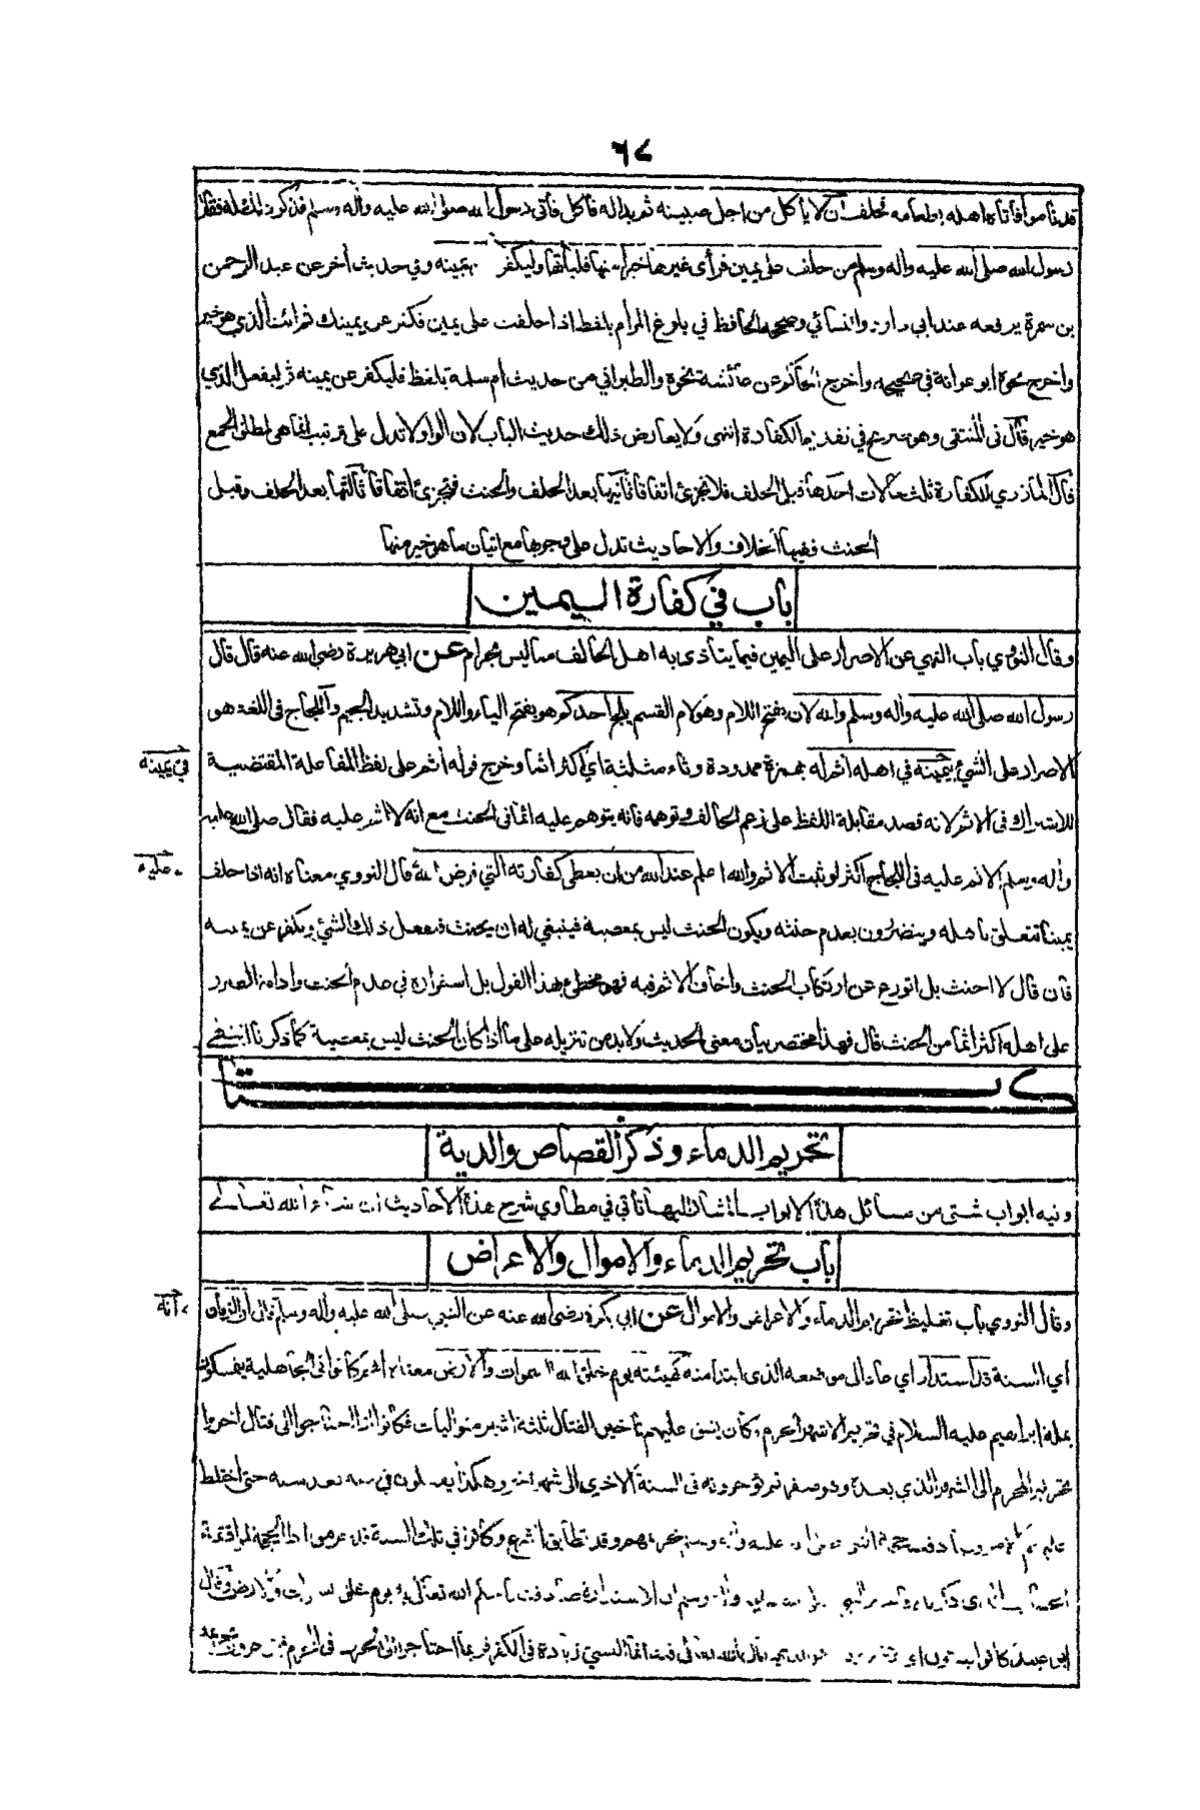 ٦٧
قد ناموا فأتاه اهله بطعامه فحلف ان لا يأكل من اجل صبيته ثم بدا له فأكل فأتى رسول الله صلى الله عليه وأله وسلم فذكر ذلك له فقال
رسول الله صلى الله عليه وأله وسلم من حلف على يمين فرأى غيرها خيرا منها فليأتها وليكفر عن يمينه وفي حديث أخر عن عبد الرحمن
بن سمرة يرفعه عند ابي داود والنسائي وصححه الحافظ في بلوغ المرام بلفظ اذا حلفت على يمين فكفر عن يمينك ثم ائت الذي هو خير
واخرج نحوه ابو عوانة في صحيحه واخرج الحاكم عن عائشة نحوه والطبراني من حديث ام سلمة بلفظ فليكفر عن يمينه ثم ليفعل الذي
هو خير قال في المنتقى وهو صريح في تقديم الكفارة انتهى ولا يعارض ذلك حديث الباب لان الواو لا تدل على ترتيب انما هي لمطلق الجمع
قال المازري للكفارة ثلث حالات احدها قبل الحلف فلا تجزئ اتفاقا ثانيها بعد الحلف والحنث فتجزئ اتفاقا ثالثها بعد الحلف وقبل
الحنث ففيها الخلاف والاحاديث تدل على وجوبها مع اتيان ما هو خير منها
باب في كفارة اليمين
وقال النووي باب النهي عن الاصرار على اليمين فيما يتأذى به اهل الحالف مما ليس بحرام عن ابي هريرة رضي الله عنه قال قال
رسول الله صلى الله عليه وأله وسلم والله لان بفتح اللام وهو لام القسم يلج احدكم هو بفتح الياء واللام وتشديد الجيم واللجاج في اللغة هو
الاصرار على الشيء بيمينه في اهله أثم له بهمزة ممدودة وثاء مثلثة اي اكثر اثما وخرج قوله أثم على لفظ المفاعلة المقتضية
في يمينه
للاشتراك في الاثم لانه قصد مقابلة اللفظ على زعم الحالف وتوهمه فانه يتوهم عليه اثما في الحنث مع انه لا اثم عليه فقال صلى الله عليه
وأله وسلم الاثم عليه في اللجاج اكثر لو ثبت الاثم والله اعلم عند الله من ان يعطي كفارته التي فرض الله قال النووي معناه انه اذا حلف
عليه
يمينا تتعلق باهله ويتضررون بعدم حنثه ويكون الحنث ليس بمعصية فينبغي له ان يحنث فيفعل ذلك الشيء ويكفر عن يمينه
فان قال لا احنث بل اتورع عن ارتكاب الحنث واخاف الاثم فيه فهو مخطئ بهذا القول بل استمراره في عدم الحنث وادامة الضرر
على اهله اكثر اثما من الحنث قال فهذا مختصر بيان معنى الحديث ولا بد من تنزيله على ما اذا كان الحنث ليس بمعصية كما ذكرنا انتهى
كتاب
تحريم الدماء وذكر القصاص والدية
وفيه ابواب شتى من مسائل هذه الابواب تأتي في مطاوي شرح هذه الاحاديث ان شاء الله تعالى
باب تحريم الدماء والاموال والاعراض
وقال النووي باب تغليظ تحريم الدماء والاعراض والاموال عن ابي بكرة رضي الله عنه عن النبي صلى الله عليه وأله وسلم قال ان الزمان
انه
اي السنة قد استدار اي عاد الى موضعه الذي ابتدأ منه كهيئته يوم خلق الله السموات والارض معناه انهم كانوا في الجاهلية يتمسكون
بملة ابراهيم عليه السلام في تحريم الاشهر الحرم وكان يشق عليهم تأخير القتال ثلثة اشهر متواليات فكانوا اذا احتاجوا الى قتال اخروا
تحريم المحرم الى الشهر الذي بعده وهو صفر ثم يؤخرونه في السنة الاخرى الى شهر اخر وهكذا يفعلون في سنة بعد سنة حتى اختلط
عليهم الامر وقد تطابق الشرع وكانوا في تلك السنة قد حرموا ذا الحجة لموافقة
الحساب الذي ذكرناه فاخبر النبي صلى الله عليه وأله وسلم ان الاستدارة صادفت ما حكم الله تعالى به يوم خلق السموات والارض وقال
ابو عبيد كانوا قال الله تعالى فيه انما النسيئ زيادة في الكفر فربما احتاجوا الى الحرب في المحرم